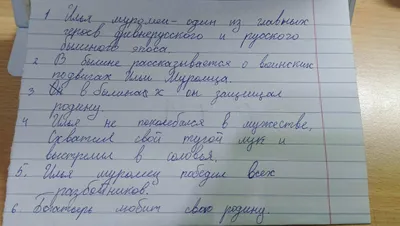 1 Илья муромец - один из главных
героев древнерусского и русского
былинного эпоса.
2 В былине рассказывается о воинских
подвигах Ильи Муромца.
3 Он в былинах он защищал
родину.
4 Илья не поколебался в мужестве,
Схватил свой тугой лук и
выстрелил в соловья.
5. Илья муромец победил всех
разбойников.
6 Богатырь любит свою родину.